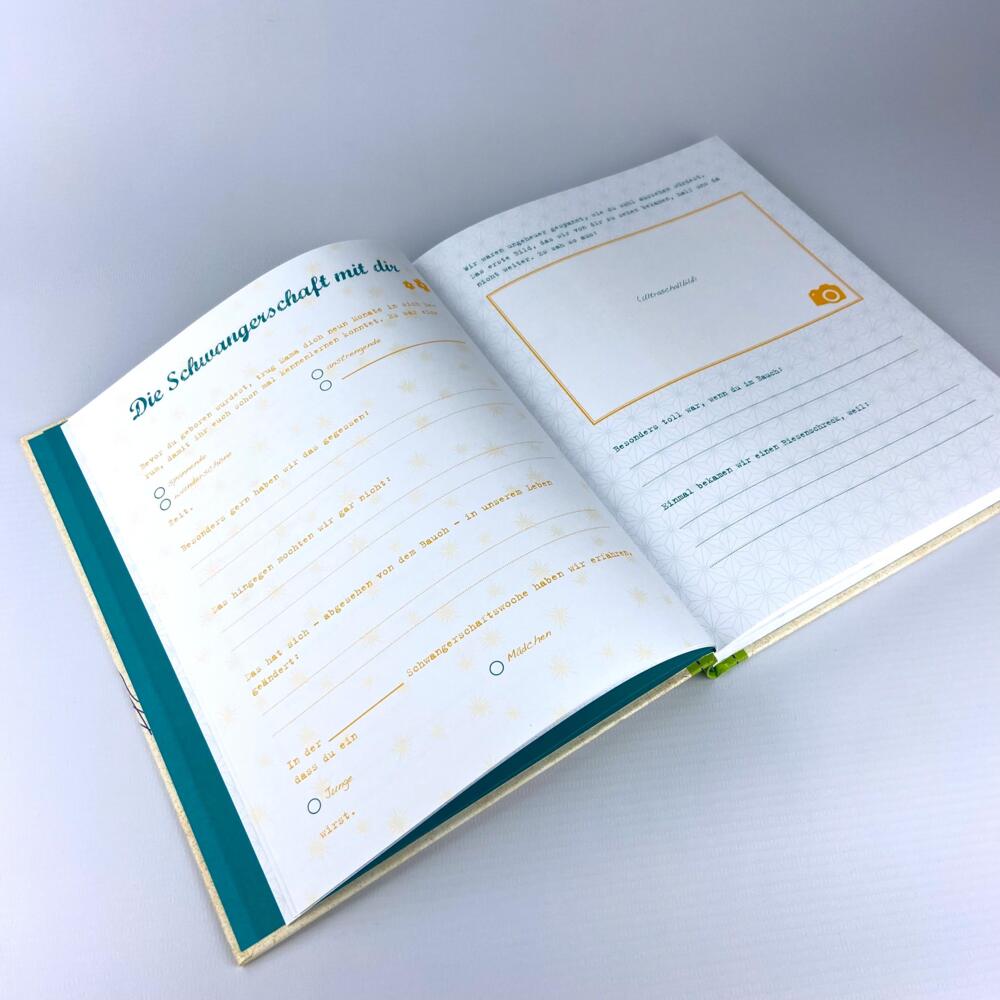 Die Schwangerschaft mit dir
Bevor du geboren wurdest, trug Mama dich neun Monate in sich he-
rum, damit ihr euch schon mal kennenlernen konntet. Es war eine
spannende
anstrengende
wunderschöne
Zeit.
Besonders gern haben wir das gegessen:
Das hingegen mochten wir gar nicht:
Das hat sich – abgesehen von dem Bauch – in unserem Leben
geändert:
In der Schwangerschaftswoche haben wir erfahren,
dass du ein
Junge
Mädchen
wirst.
Wir waren ungeheuer gespannt, wie du wohl aussehen würdest.
Das erste Bild, das wir von dir zu sehen bekamen, half uns da
nicht weiter. Du sah so aus:
(Ultraschallbild)
Besonders toll war, wenn du im Bauch:
Einmal bekamen wir einen Riesenschreck, weil: